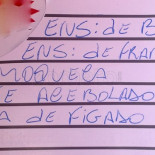 ENS: de B
ENS: de FRAN
MOQUECA
E ACEBOLADO
A DE FÍGADO